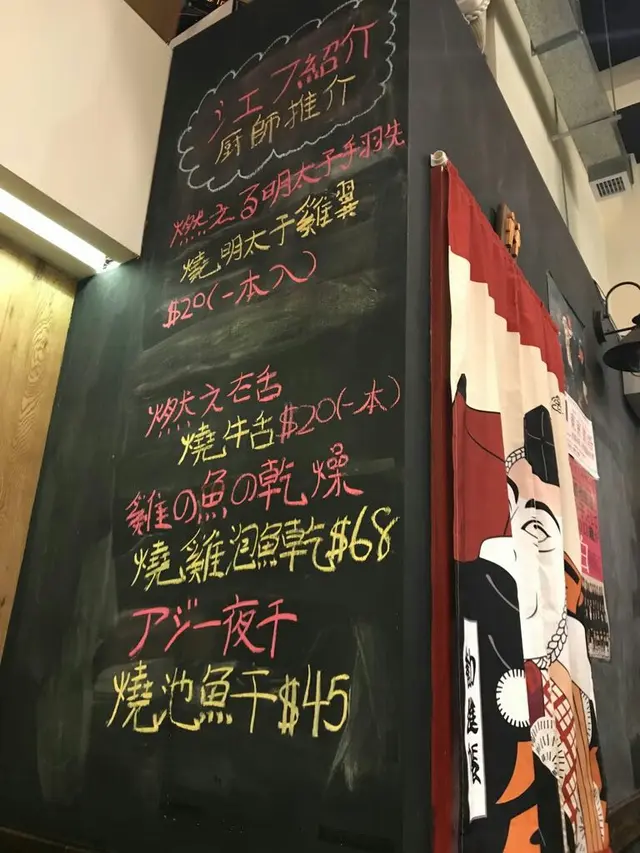 シェフ紹介
厨師推介
燃える明太子手羽先
燒明太子雞翼
$20(一本入)
燃え在舌
燒牛舌$20(一本)
雞の魚の乾燥
燒雞泡魚乾$68
アジ一夜干
燒池魚干$45
勧進帳